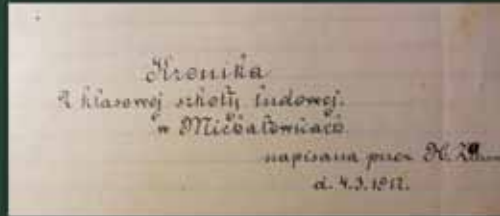 Kronika
2 klasowej szkoły ludowej.
w Michałowicach.
napisana przez H.
d. 4.3.1912.